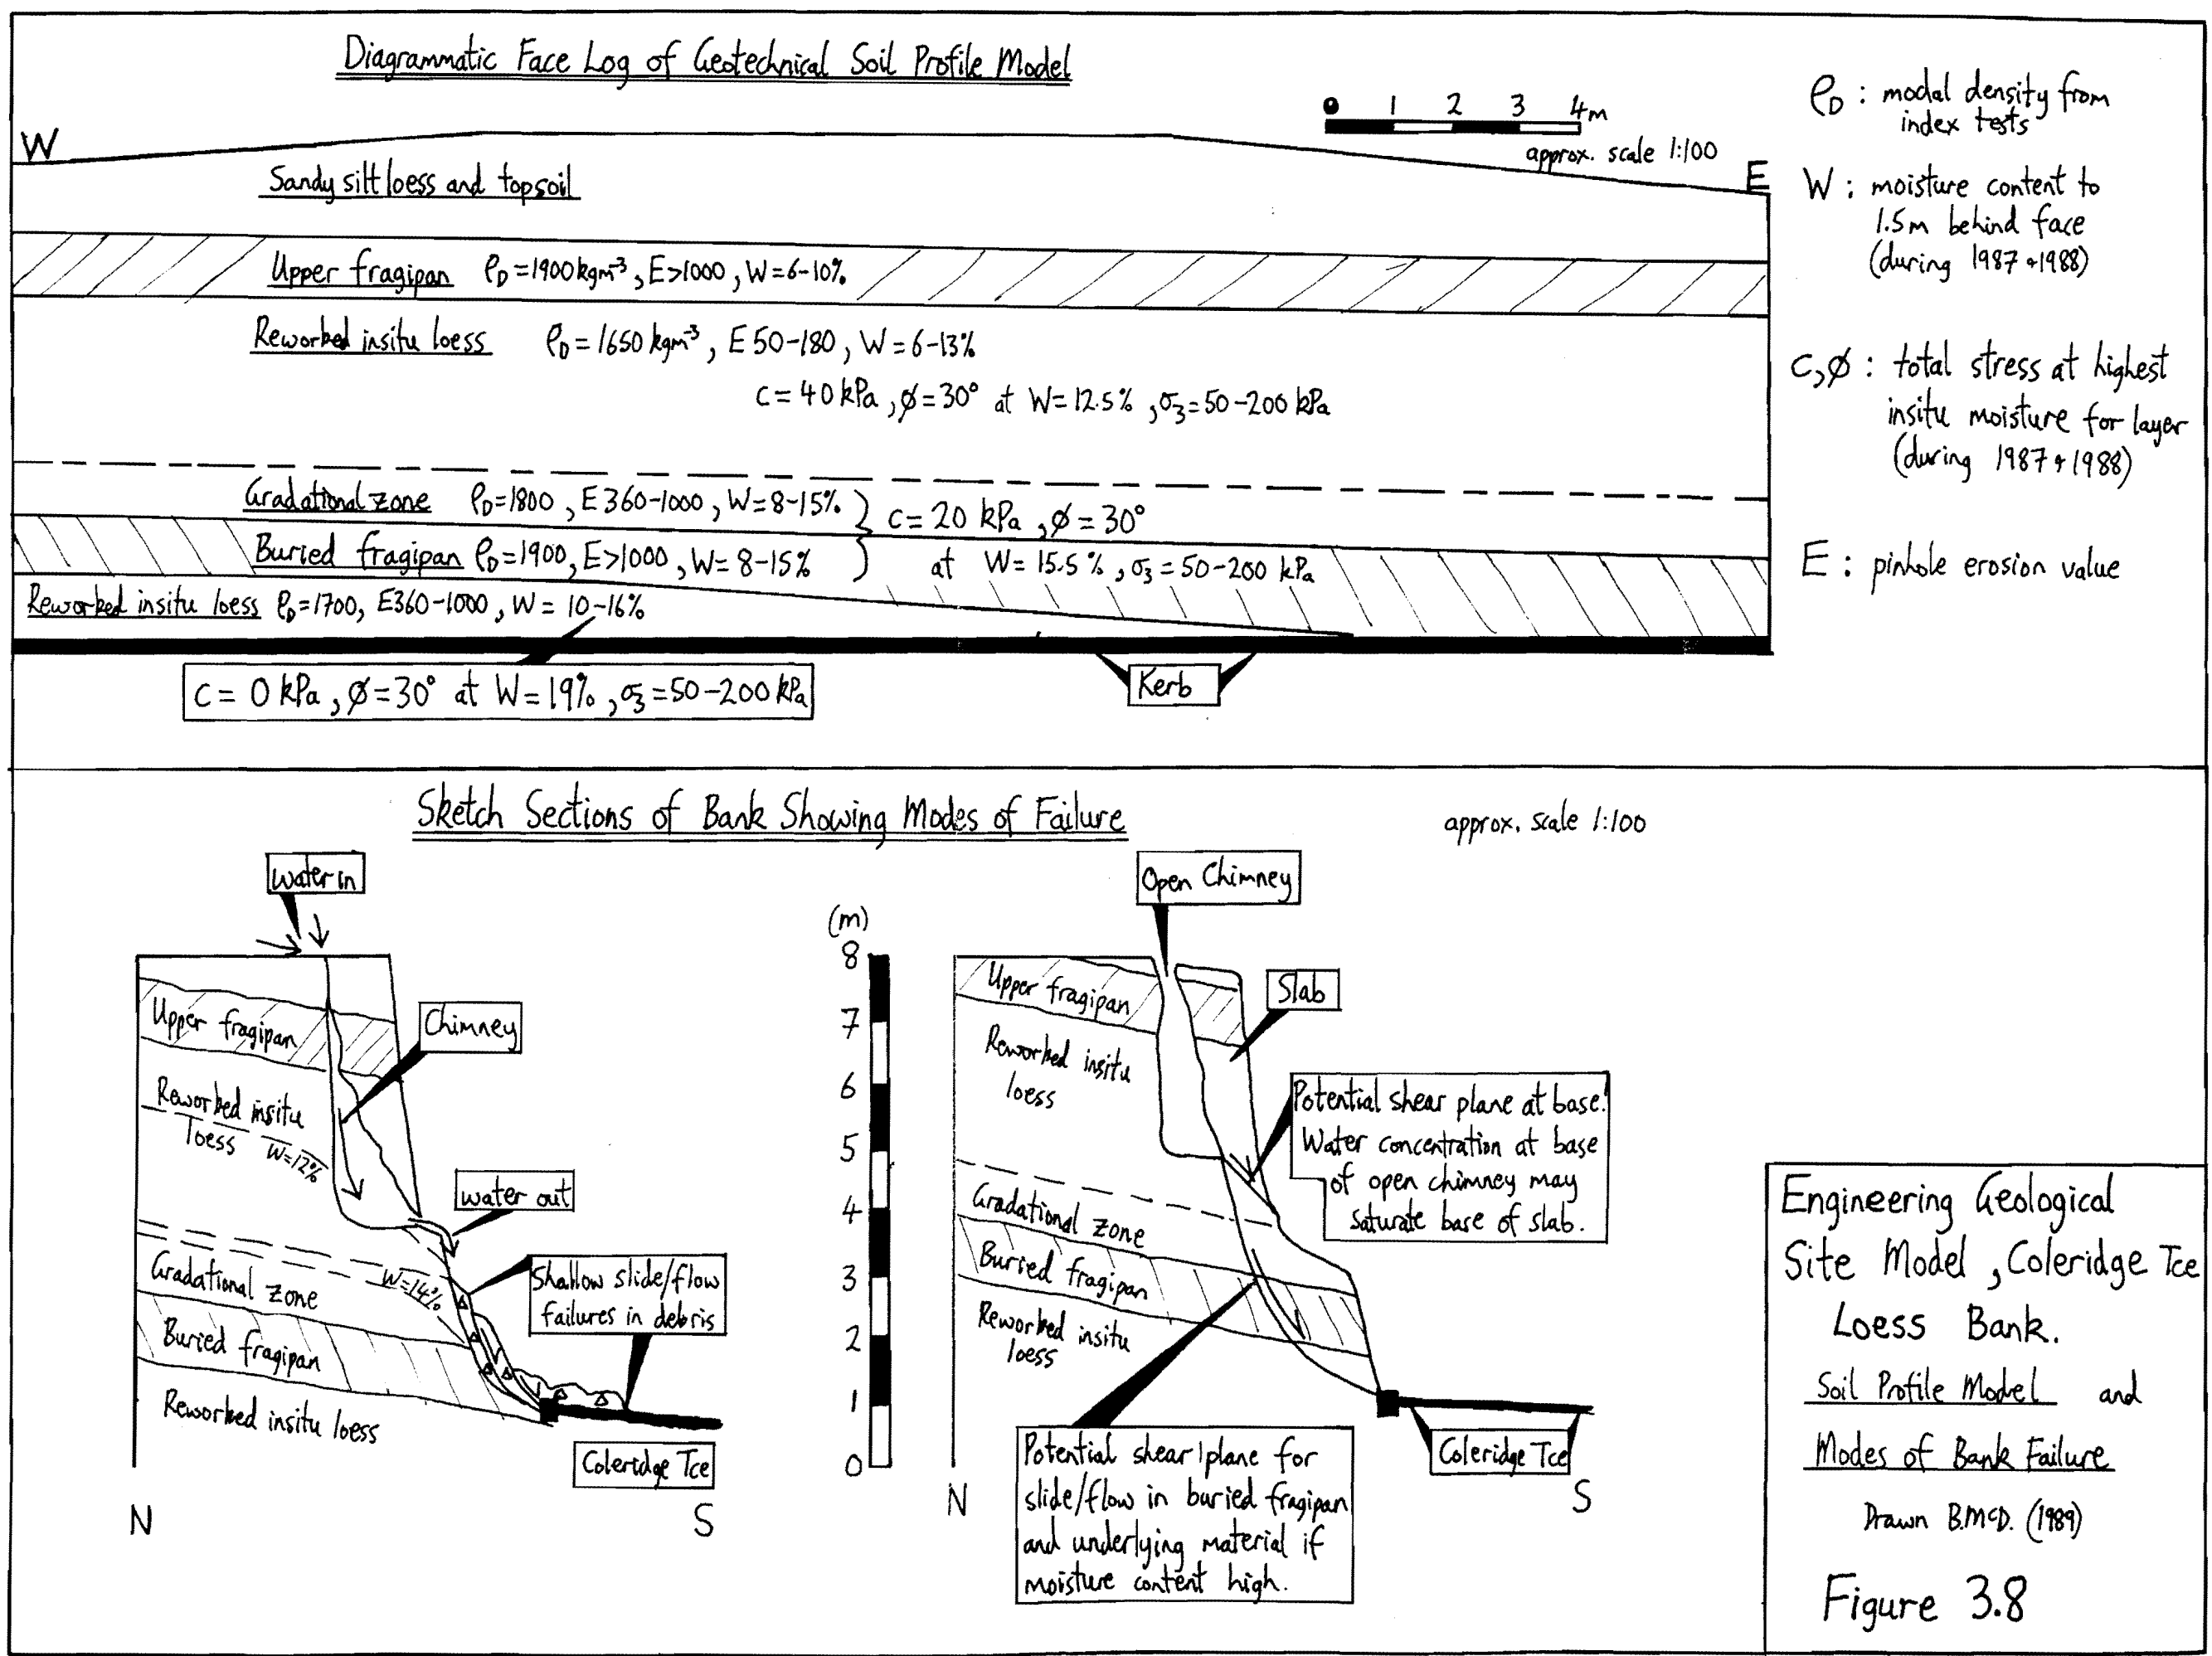 Diagrammatic Face Log of Geotechnical Soil Profile Model
0 1 2 3 4m
approx. scale 1:100
W
E
Sandy silt loess and topsoil
Upper fragipan ρD=1900kgm⁻³, E>1000, W=6-10%
Reworked insitu loess ρD=1650 kgm⁻³, E 50-180, W=6-13%
c=40 kPa, ø=30° at W=12.5%, σ3=50-200 kPa
Gradational zone ρD=1800, E 360-1000, W=8-15%
c=20 kPa, ø=30°
Buried fragipan ρD=1900, E>1000, W=8-15%
at W=15.5%, σ3=50-200 kPa
Reworked insitu loess ρD=1700, E360-1000, W=10-16%
c=0 kPa, ø=30° at W=19%, σ3=50-200 kPa
Kerb
ρD : modal density from
index tests
W : moisture content to
1.5m behind face
(during 1987 + 1988)
c, ø : total stress at highest
insitu moisture for layer
(during 1987 + 1988)
E : pinhole erosion value
Sketch Sections of Bank Showing Modes of Failure
approx. scale 1:100
water in
Upper fragipan
Chimney
Reworked insitu
loess W=12%
water out
Gradational zone
W=14%
Shallow slide/flow
failures in debris
Buried fragipan
Reworked insitu loess
Coleridge Tce
N
S
(m)
8
7
6
5
4
3
2
1
0
Open Chimney
Upper fragipan
Slab
Reworked insitu
loess
Potential shear plane at base.
Water concentration at base
of open chimney may
saturate base of slab.
Gradational zone
Buried fragipan
Reworked insitu
loess
Potential shear plane for
slide/flow in buried fragipan
and underlying material if
moisture content high.
Coleridge Tce
N
S
Engineering Geological
Site Model, Coleridge Tce
Loess Bank.
Soil Profile Model and
Modes of Bank Failure
Drawn B.McD. (1989)
Figure 3.8